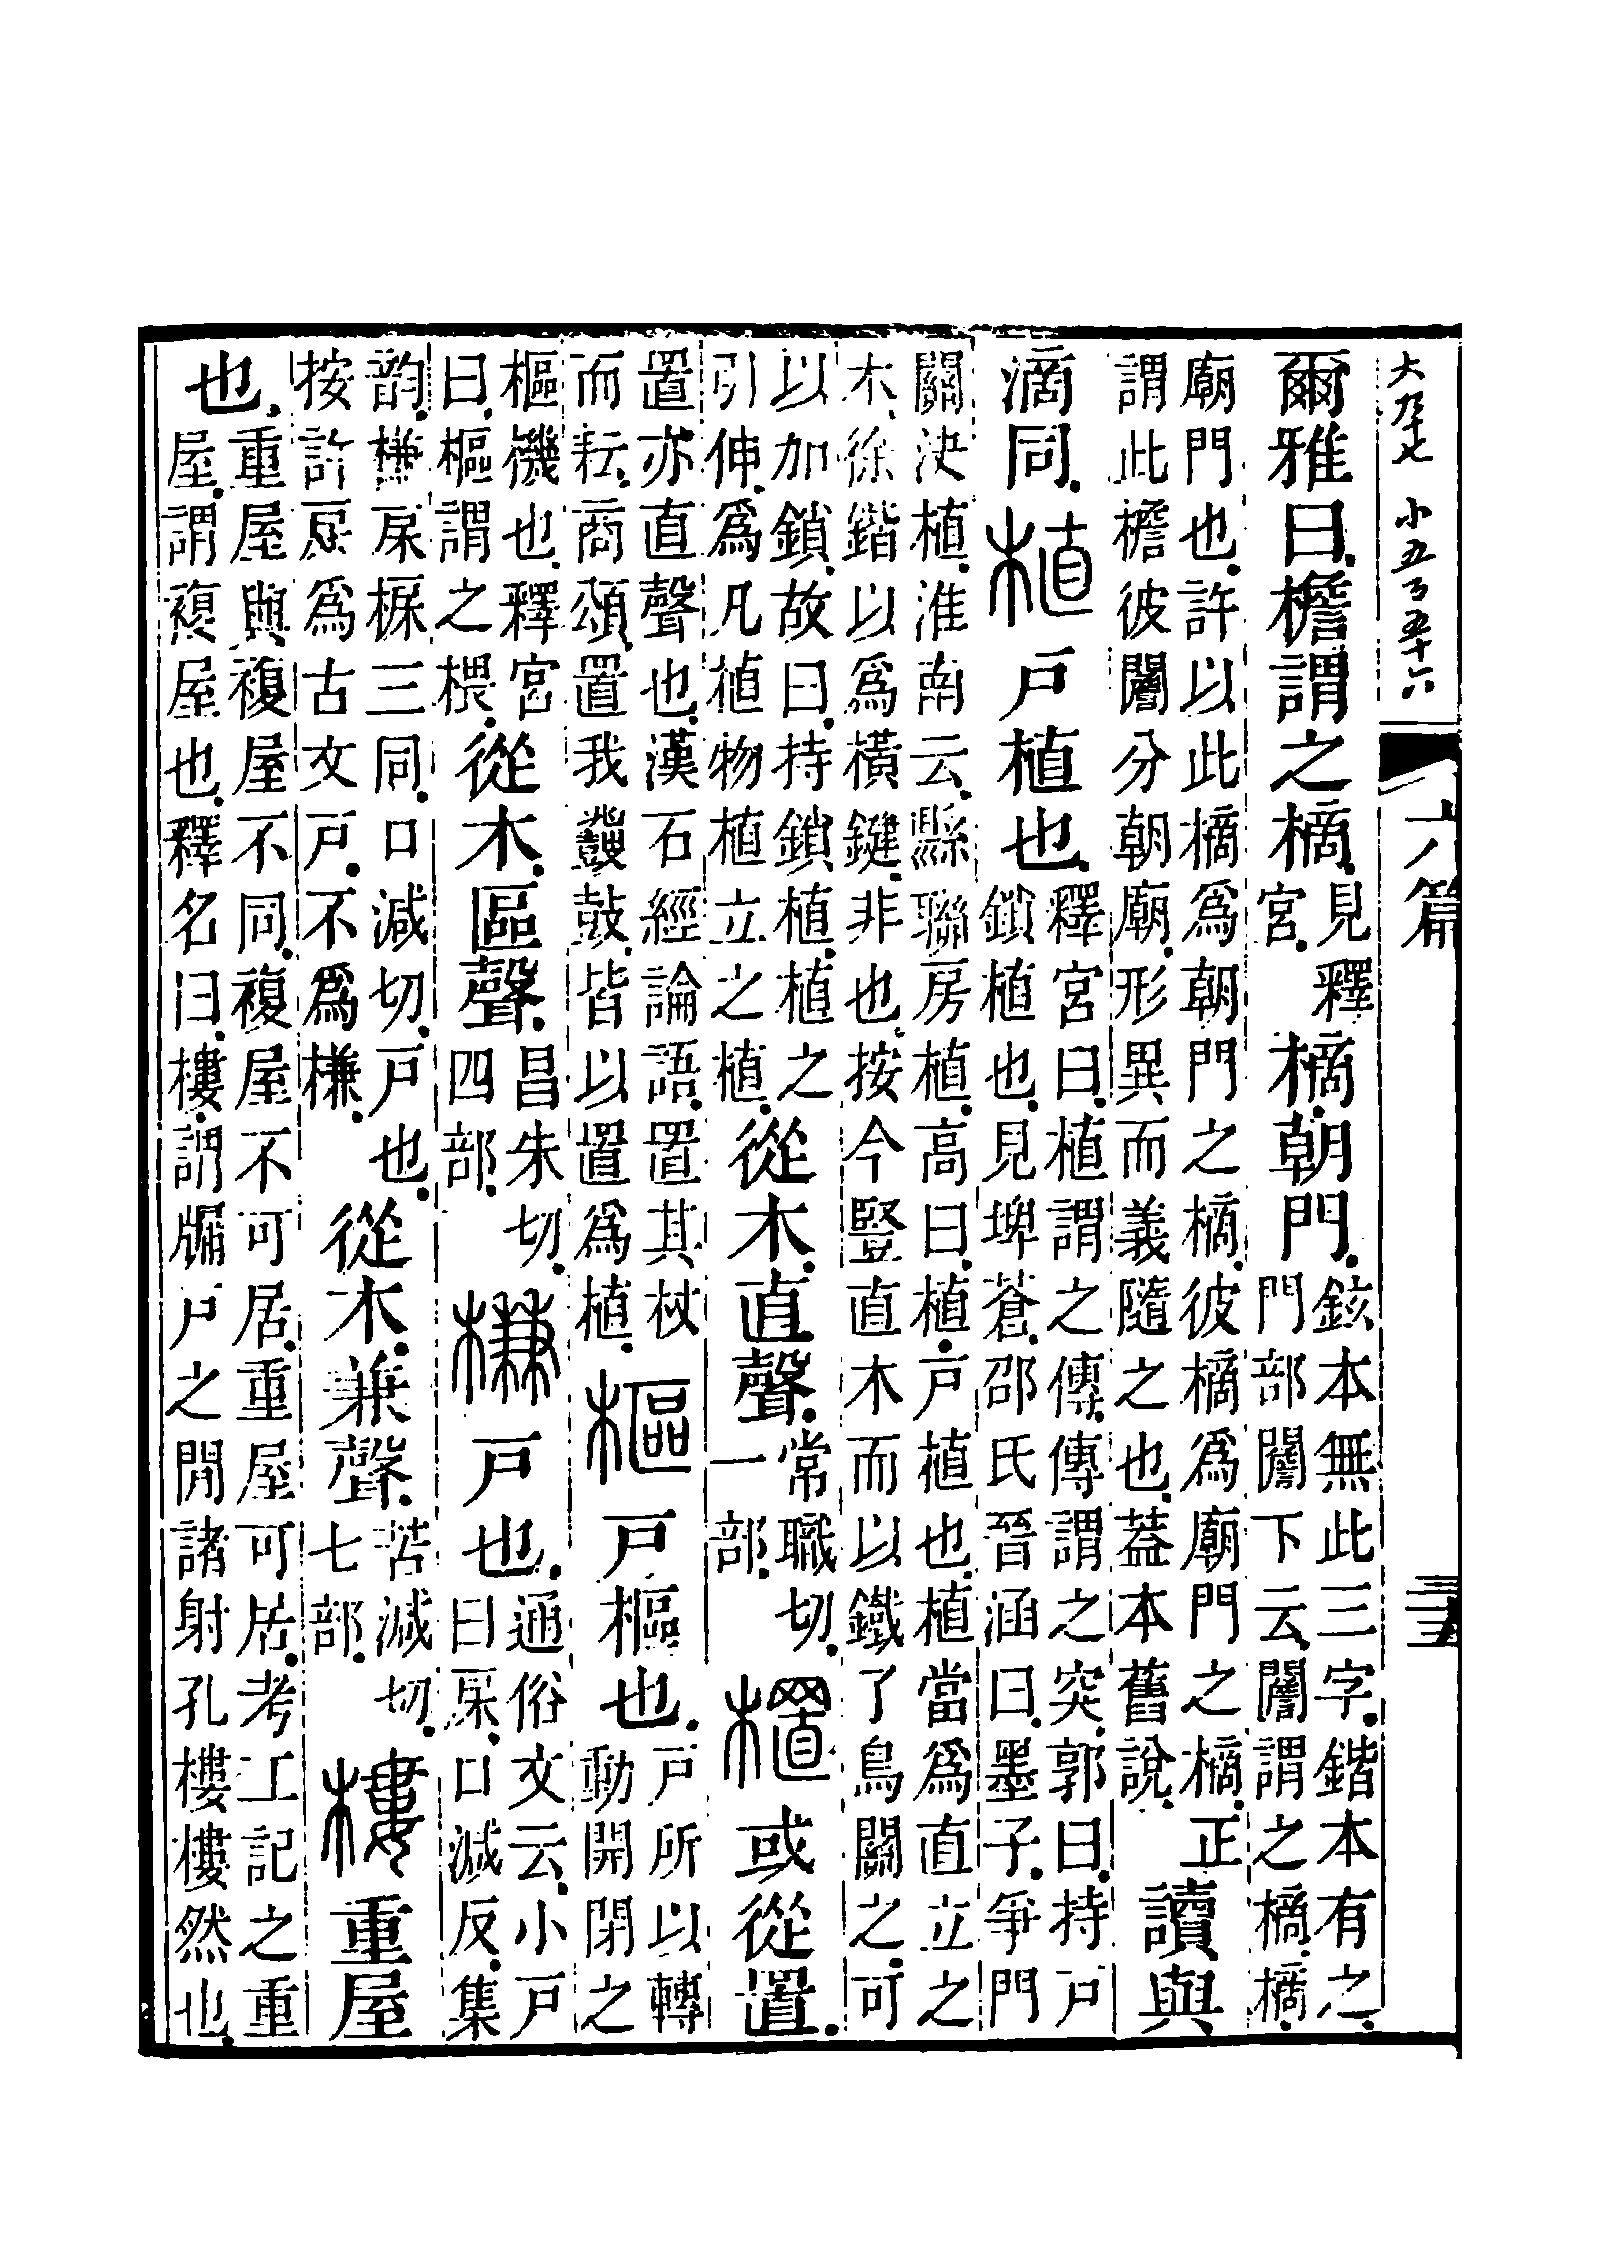 大九十七　小五百五十六
六篇
爾雅曰檐謂之樀
見釋
宮
樀朝門
鉉本無此三字鍇本有之
門部闇下云闇謂之樀樀
廟門也許以此樀爲朝門之樀彼樀爲廟門之樀正
謂此檐彼闇分朝廟形異而義隨之也葢本舊說
讀與
滴同植戶植也
釋宮曰植謂之傳傳謂之突郭曰持戶
鎖植也見埤蒼邵氏晉涵曰墨子爭門
關決植淮南云縣聯房植高曰植戶植也植當爲直立之
木徐鍇以爲橫鍵非也按今豎直木而以鐵了鳥關之可
以加鎖故曰持鎖植植之
引伸爲凡植物植立之植
從木直聲
常職切
一部
㯰或從置
置亦直聲也漢石經論語置其杖
而耘商頌置我鼗鼓皆以置爲植
樞戶樞也
戶所以轉
動開閉之
樞機也釋宮
曰樞謂之椳
從木區聲
昌朱切
四部
槏戶也
通俗文云小戶
曰㦿口減反集
韵槏㦿三同口減切戶也
按許㦿爲古文戶不爲槏
從木兼聲
苦減切
七部
樓重屋
也
重屋與複屋不同複屋不可居重屋可居考工記之重
屋謂複屋也釋名曰樓謂牖戶之閒諸射孔樓樓然也